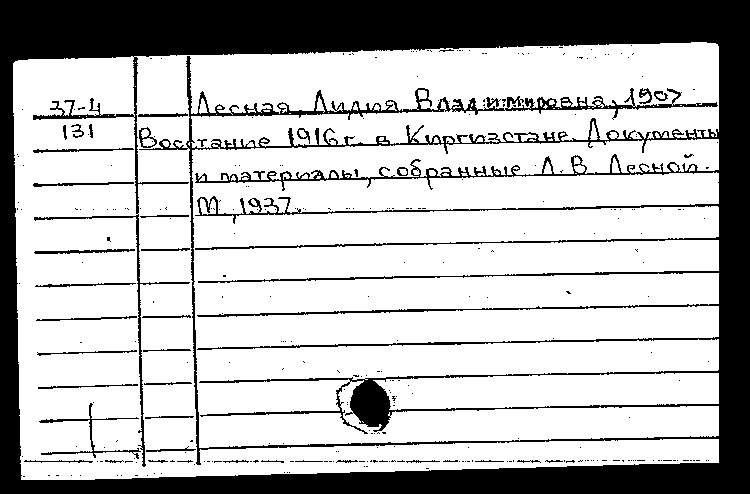 37-4 Лесная, Лидия Владимировна, 1907
131 Восстание 1916 г. в Киргизстане. Документы
и материалы, собранные Л. В. Лесной.
М, 1937.